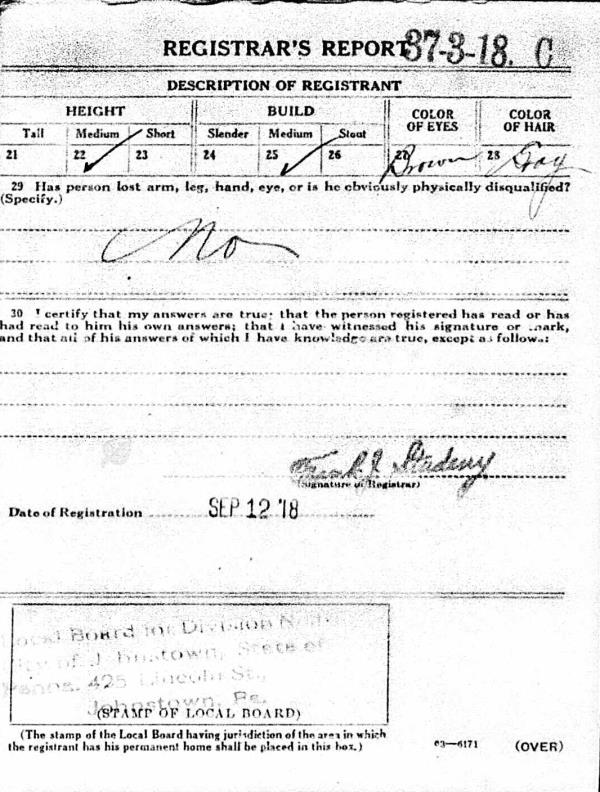 REGISTRAR'S REPORT 37-3-18. C
DESCRIPTION OF REGISTRANT
HEIGHT BUILD COLOR OF EYES COLOR OF HAIR
Tall Medium Short Slender Medium Stout
21 22 ✓ 23 24 25 ✓ 26 27 Brown 28 Gray
29 Has person lost arm, leg, hand, eye, or is he obviously physically disqualified?
(Specify.)
No
30 I certify that my answers are true; that the person registered has read or has
had read to him his own answers; that I have witnessed his signature or mark,
and that all of his answers of which I have knowledge are true, except as follows:
Frank J.
(Signature of Registrar)
Date of Registration SEP 12 '18
Local Board for Division No.
City of Johnstown, State of
Penna. 425 Lincoln St.,
Johnstown, Pa.
(STAMP OF LOCAL BOARD)
(The stamp of the Local Board having jurisdiction of the area in which
the registrant has his permanent home shall be placed in this box.)
03—6171 (OVER)